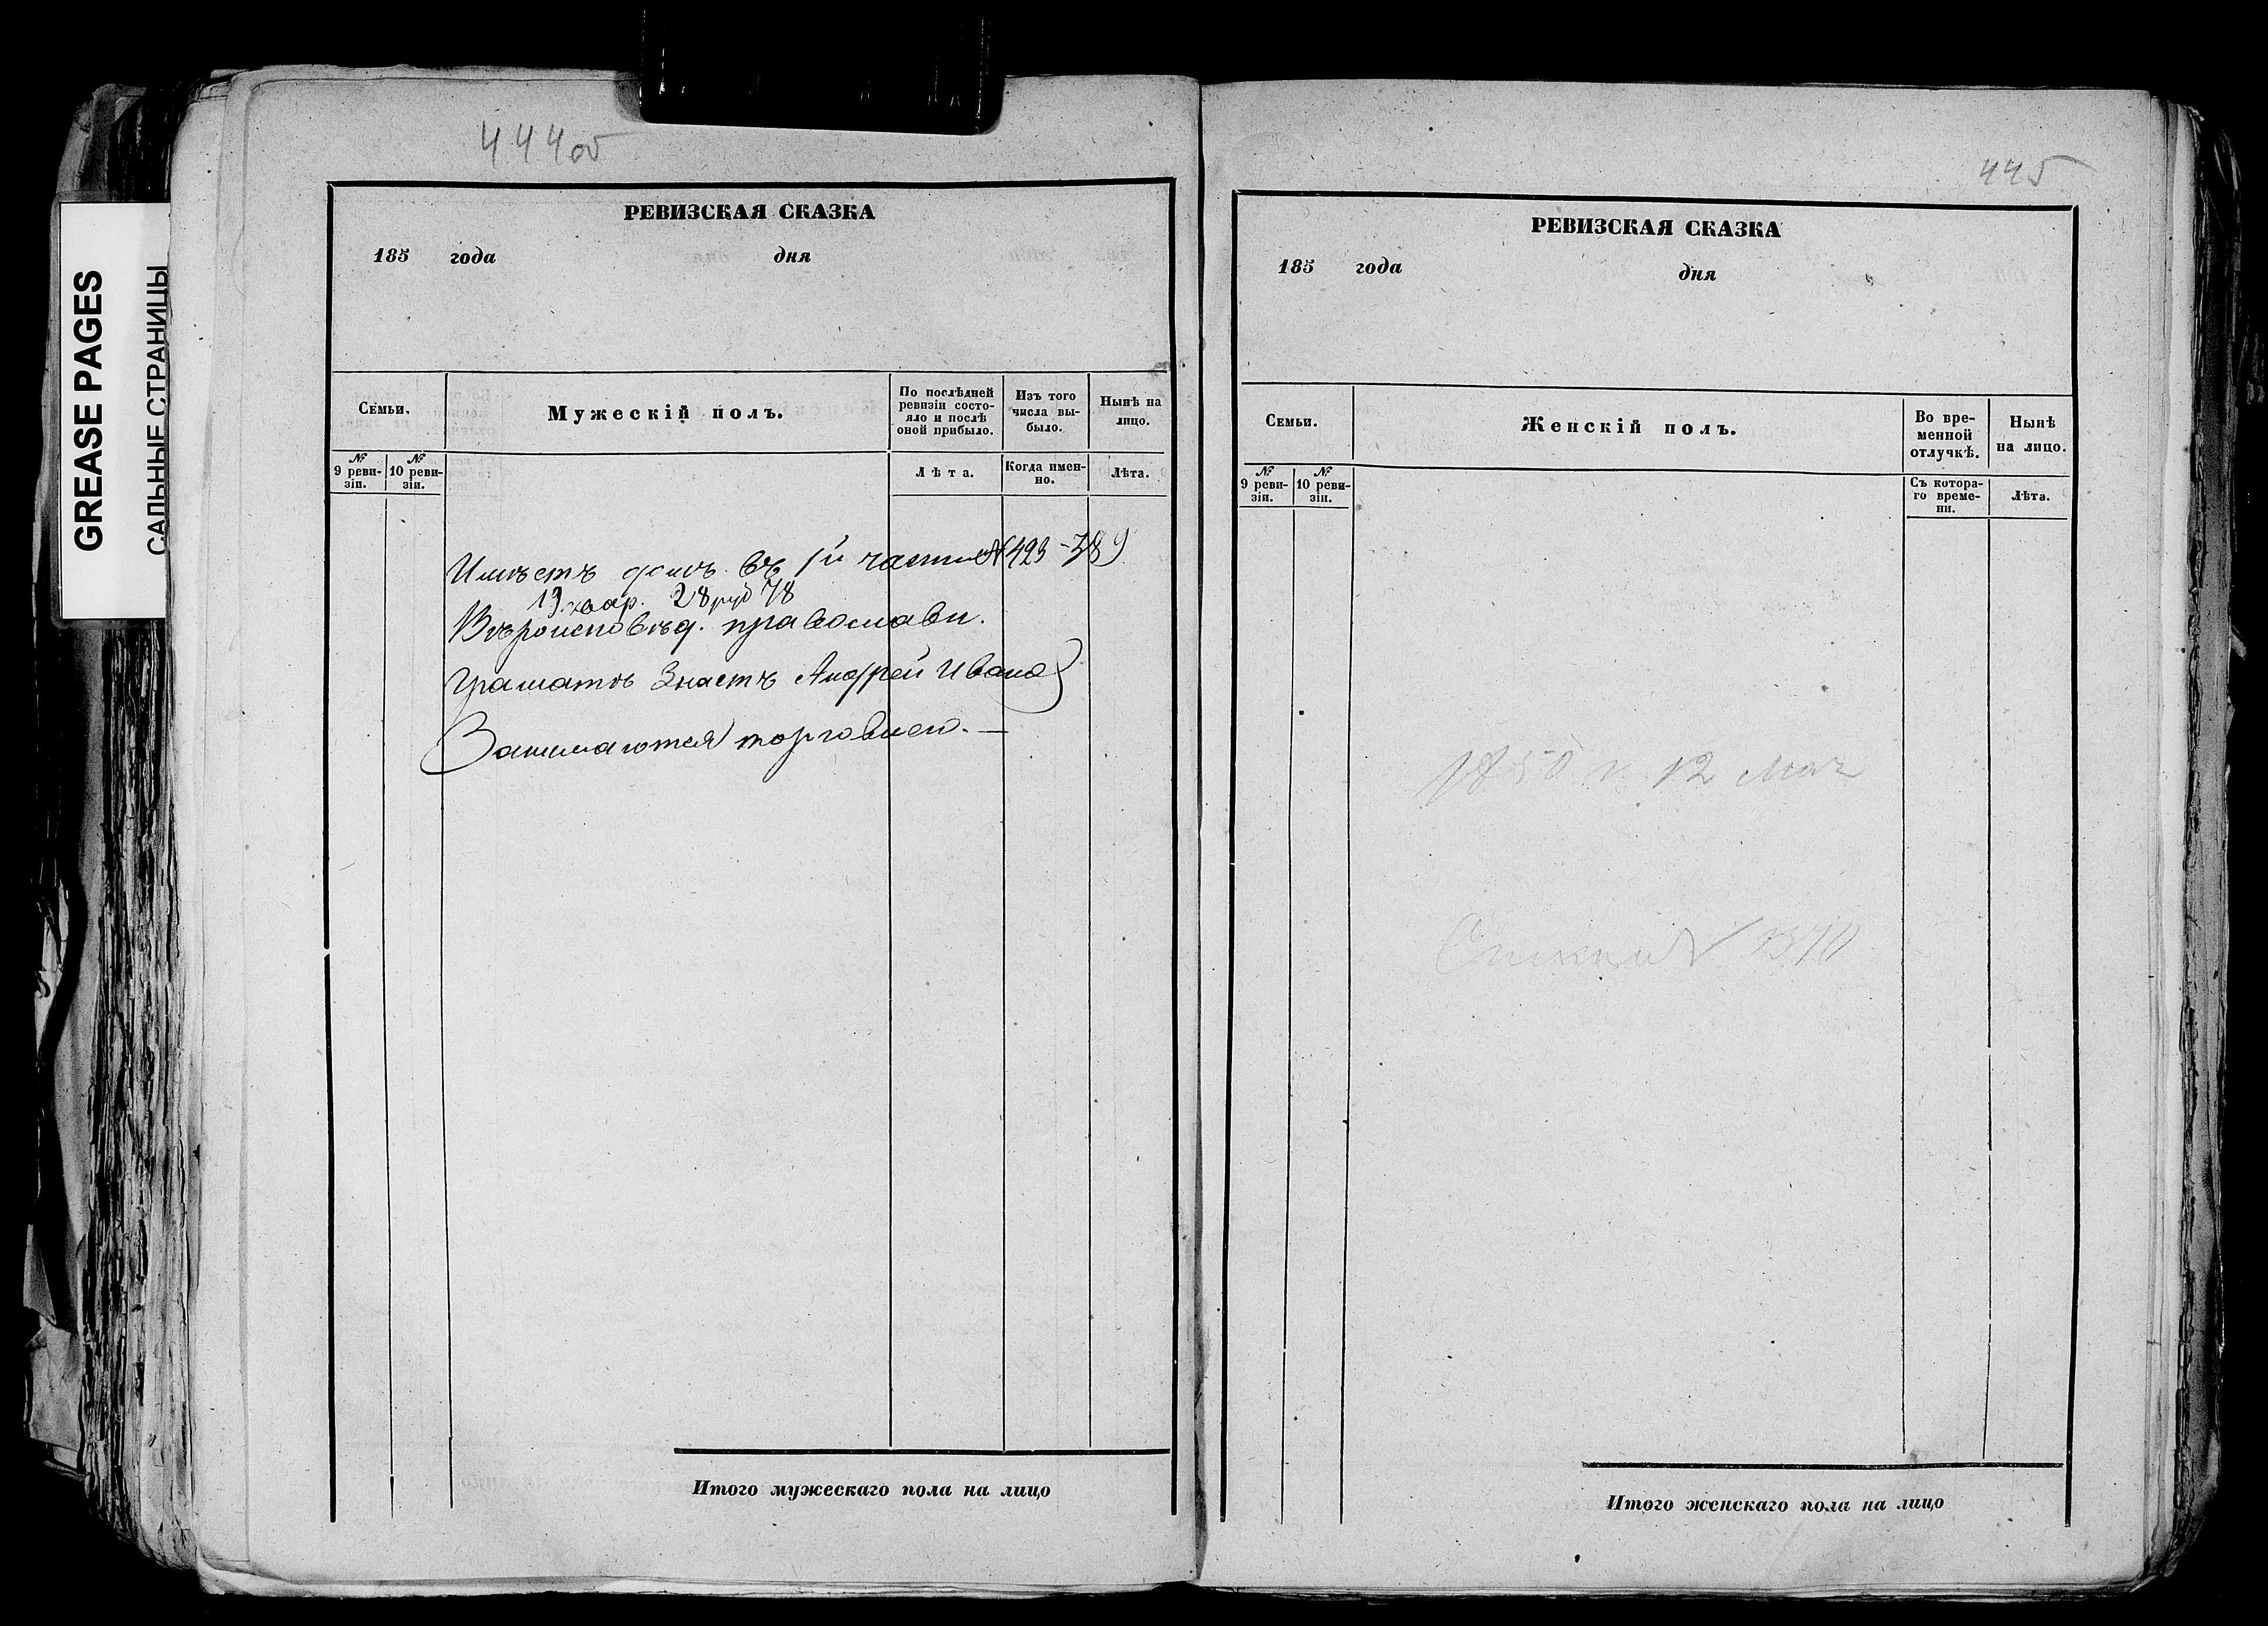 GREASE PAGES
САЛЬНЫЕ СТРАНИЦЫ
444об
РЕВИЗСКАЯ СКАЗКА
185 года дня
Семьи.
Мужескій полъ.
По послѣдней ревизіи состояло и послѣ оной прибыло.
Изъ того числа выбыло.
Нынѣ на лицо.
№ 9 ревизіи.
№ 10 ревизіи.
Лѣта.
Когда именно.
Лѣта.
Имѣетъ домъ въ 1й части № 423 - 389
19. 28 руб 78
Вѣроисповѣд. православн.
Грамотѣ знаетъ Андрей Ивано
Занимаются торговлею. —
Итого мужескаго пола на лицо
445
РЕВИЗСКАЯ СКАЗКА
185 года дня
Семьи.
Женскій полъ.
Во временной отлучкѣ.
Нынѣ на лицо.
№ 9 ревизіи.
№ 10 ревизіи.
Съ котораго времени.
Лѣта.
1850 12
Итого женскаго пола на лицо